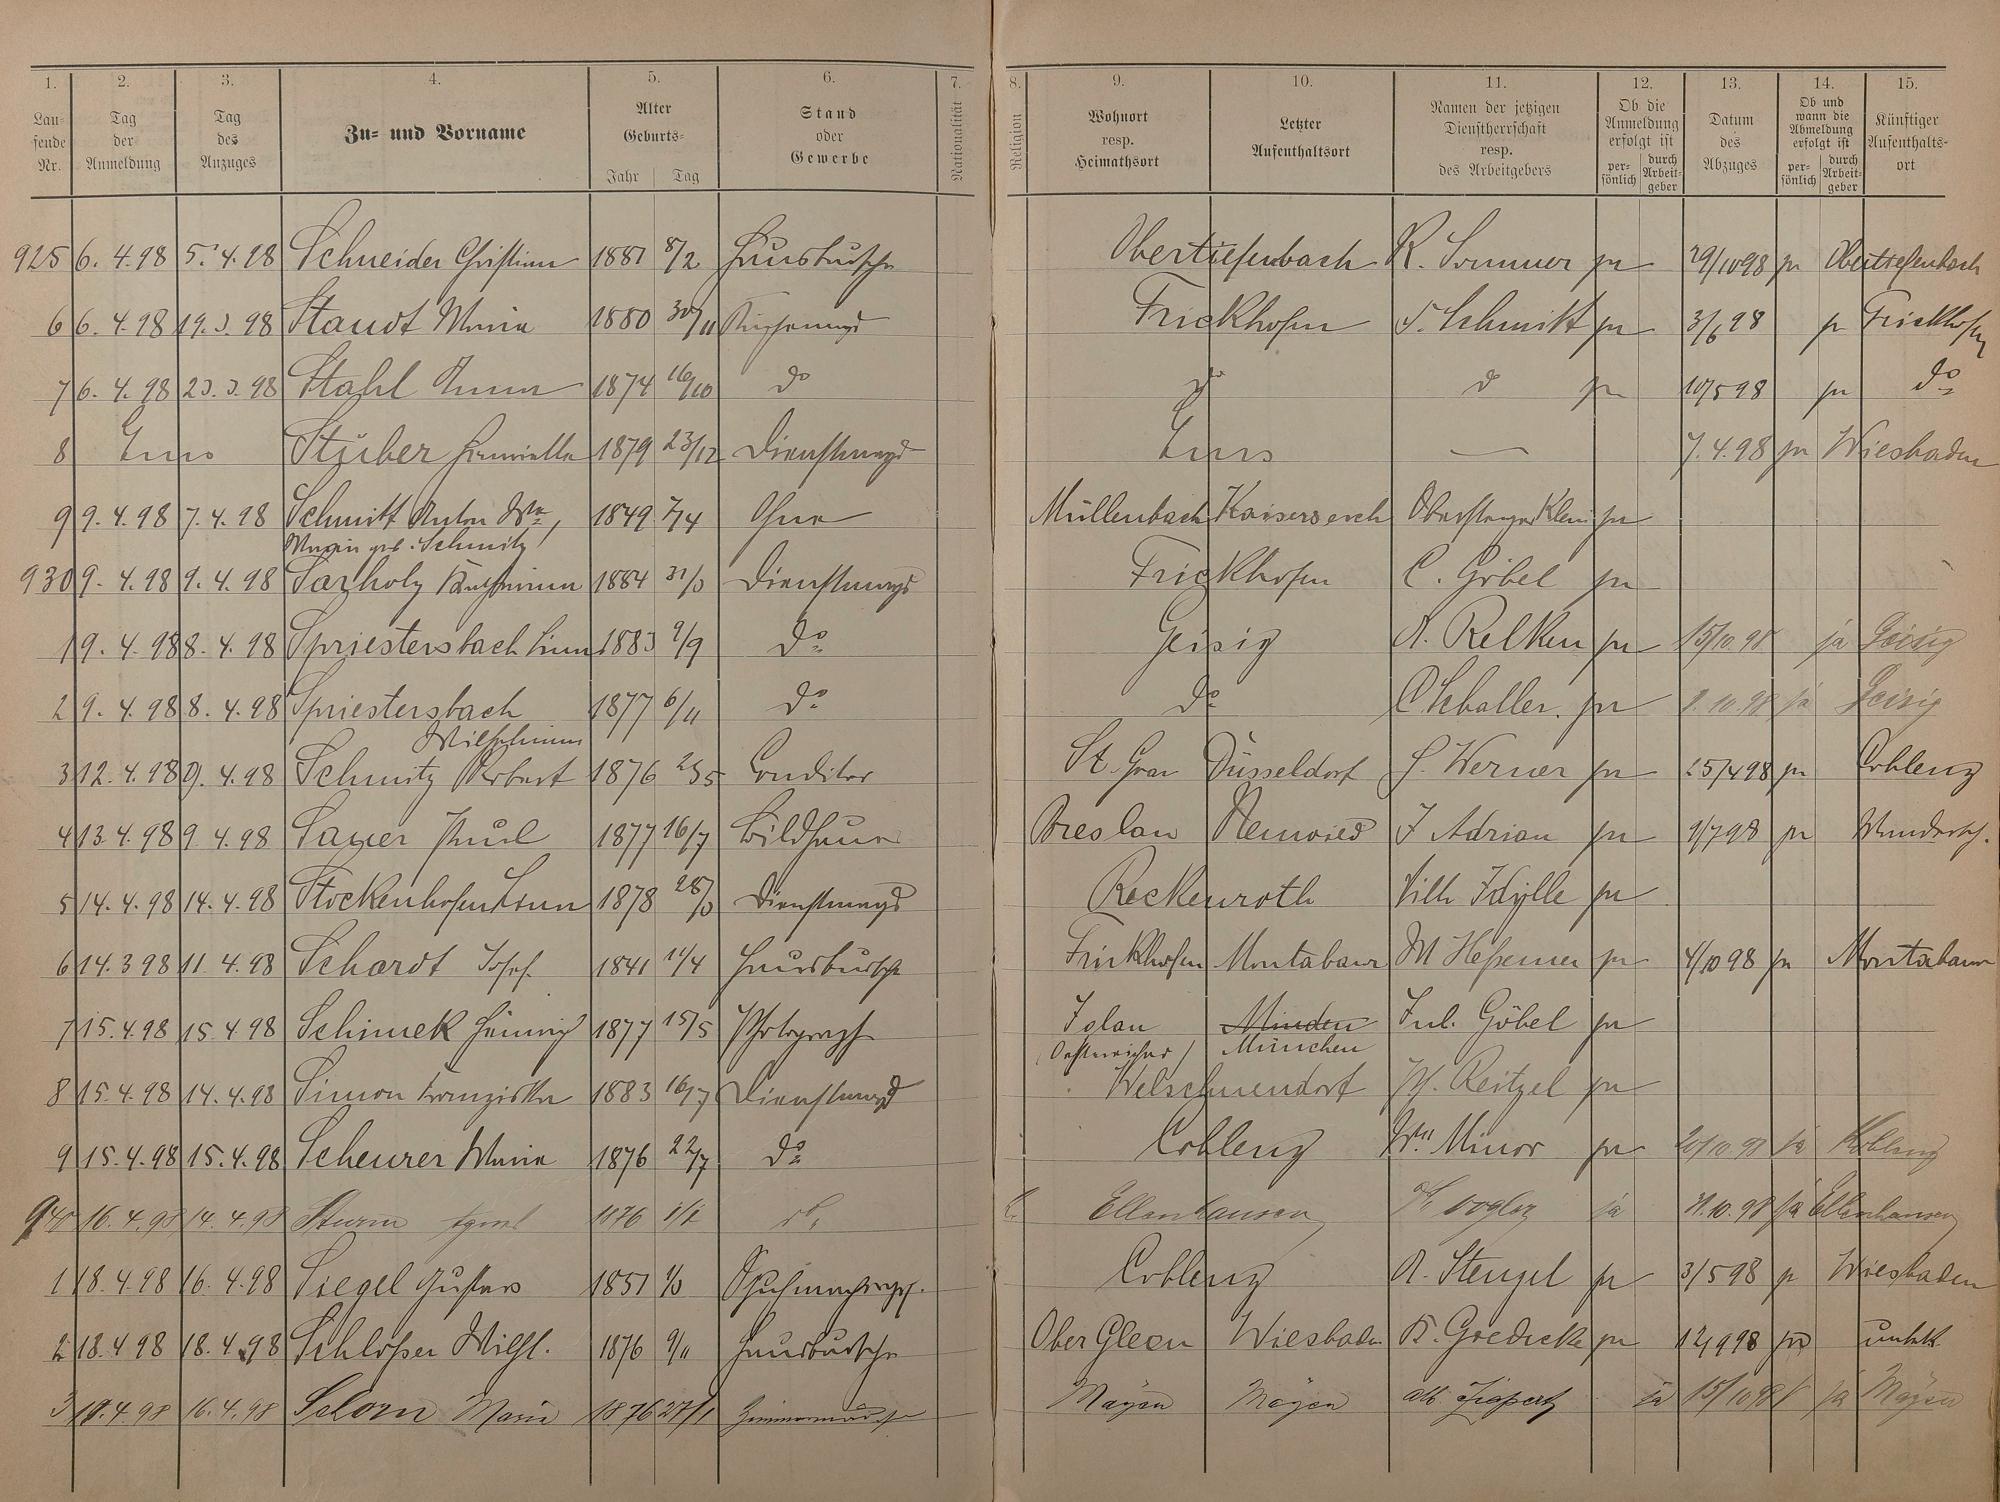 1. 2. 3. 4. 5. 6. 7. 8. 9. 10. 11. 12. 13. 14. 15.
Laufende Nr. | Tag der Anmeldung | Tag des Anzuges | Zu- und Vorname | Alter Geburts- Jahr Tag | Stand oder Gewerbe | Nationalität | Religion | Wohnort resp. Heimathsort | Letzter Aufenthaltsort | Namen der jetzigen Dienstherrschaft resp. des Arbeitgebers | Ob die Anmeldung erfolgt ist persönlich durch Arbeitgeber | Datum des Abzuges | Ob und wann die Abmeldung erfolgt ist persönlich durch Arbeitgeber | Künftiger Aufenthaltsort
925 6. 4. 98 5. 4. 98 Schneider Christian 1881 8/2 Hausbursche Obertiefenbach R. Sommer 29/10 98 Obertiefenbach
6 6. 4. 98 19. 3. 98 Staudt Maria 1880 30/11 Frickhofen Schmitt 3/6 98 Frickhofen
7 6. 4. 98 23. 3. 98 Stahl Anna 1874 16/10 do do do 10/5 98 do
8 Ems Stüber Henriette 1879 23/12 Dienstmagd Ems — 7. 4. 98 Wiesbaden
9 9. 4. 98 7. 4. 98 Schmitt Anton Ww, 1849 7/4 Ohne Müllenbach Kaisersesch Klein
Maria geb. Schmitz
930 9. 4. 98 9. 4. 98 Sarholz Katharina 1884 31/3 Dienstmagd Frickhofen C. Göbel
1 9. 4. 98 8. 4. 98 Spriestersbach Lina 1883 9/9 do Geisig A. Relken 15/10 98 ja Geisig
2 9. 4. 98 8. 4. 98 Spriestersbach 1877 6/11 do do C. Schaller 1. 10. 98 ja Geisig
Wilhelmine
3 12. 4. 98 9. 4. 98 Schmitz 1876 Conditor St. Goar Düsseldorf Werner 25/4 98 Coblenz
4 13. 4. 98 9. 4. 98 Sayer Paul 1877 16/7 Bildhauer Breslau Neuwied J Adrian 9/7 98
5 14. 4. 98 14. 4. 98 Stockenhofen 1878 28/3 Dienstmagd Reckenroth Villa Idylle
6 14. 3 98 11. 4. 98 Schardt Josef 1841 11/4 Hausbursche Frickhofen Montabaur M Heßemer 4/10 98 Montabaur
7 15. 4. 98 15. 4 98 Schimek Heinrich 1877 15/5 Photograph Iglau Minden Jul. Göbel
(Oesterreicher) München
8 15. 4. 98 14. 4. 98 Simon Franziska 1883 16/7 Dienstmagd Welschneudorf Reitzel
9 15. 4. 98 15. 4. 98 Scheurer Maria 1876 22/7 do Coblenz Ww. Minor 20/10 98 ja Koblenz
940 16. 4. 98 14. 4. 98 Sturm 1876 do Ellenhausen Vogler ja 31. 10. 98 ja Ellenhausen
1 18. 4. 98 16. 4. 98 Siegel Gustav 1851 Coblenz A. Stengel 3/5 98 Wiesbaden
2 18. 4 98 18. 4. 98 Schlößer Wilh. 1876 9/11 Hausbursche Ober Gleen Wiesbaden K. Goedicke 12/9 98 unbek
3 18. 4. 98 16. 4. 98 Schorn Maria 1876 27/1 Zimmermädchen Mayen Mayen ja 15/10 98 ja Mayen